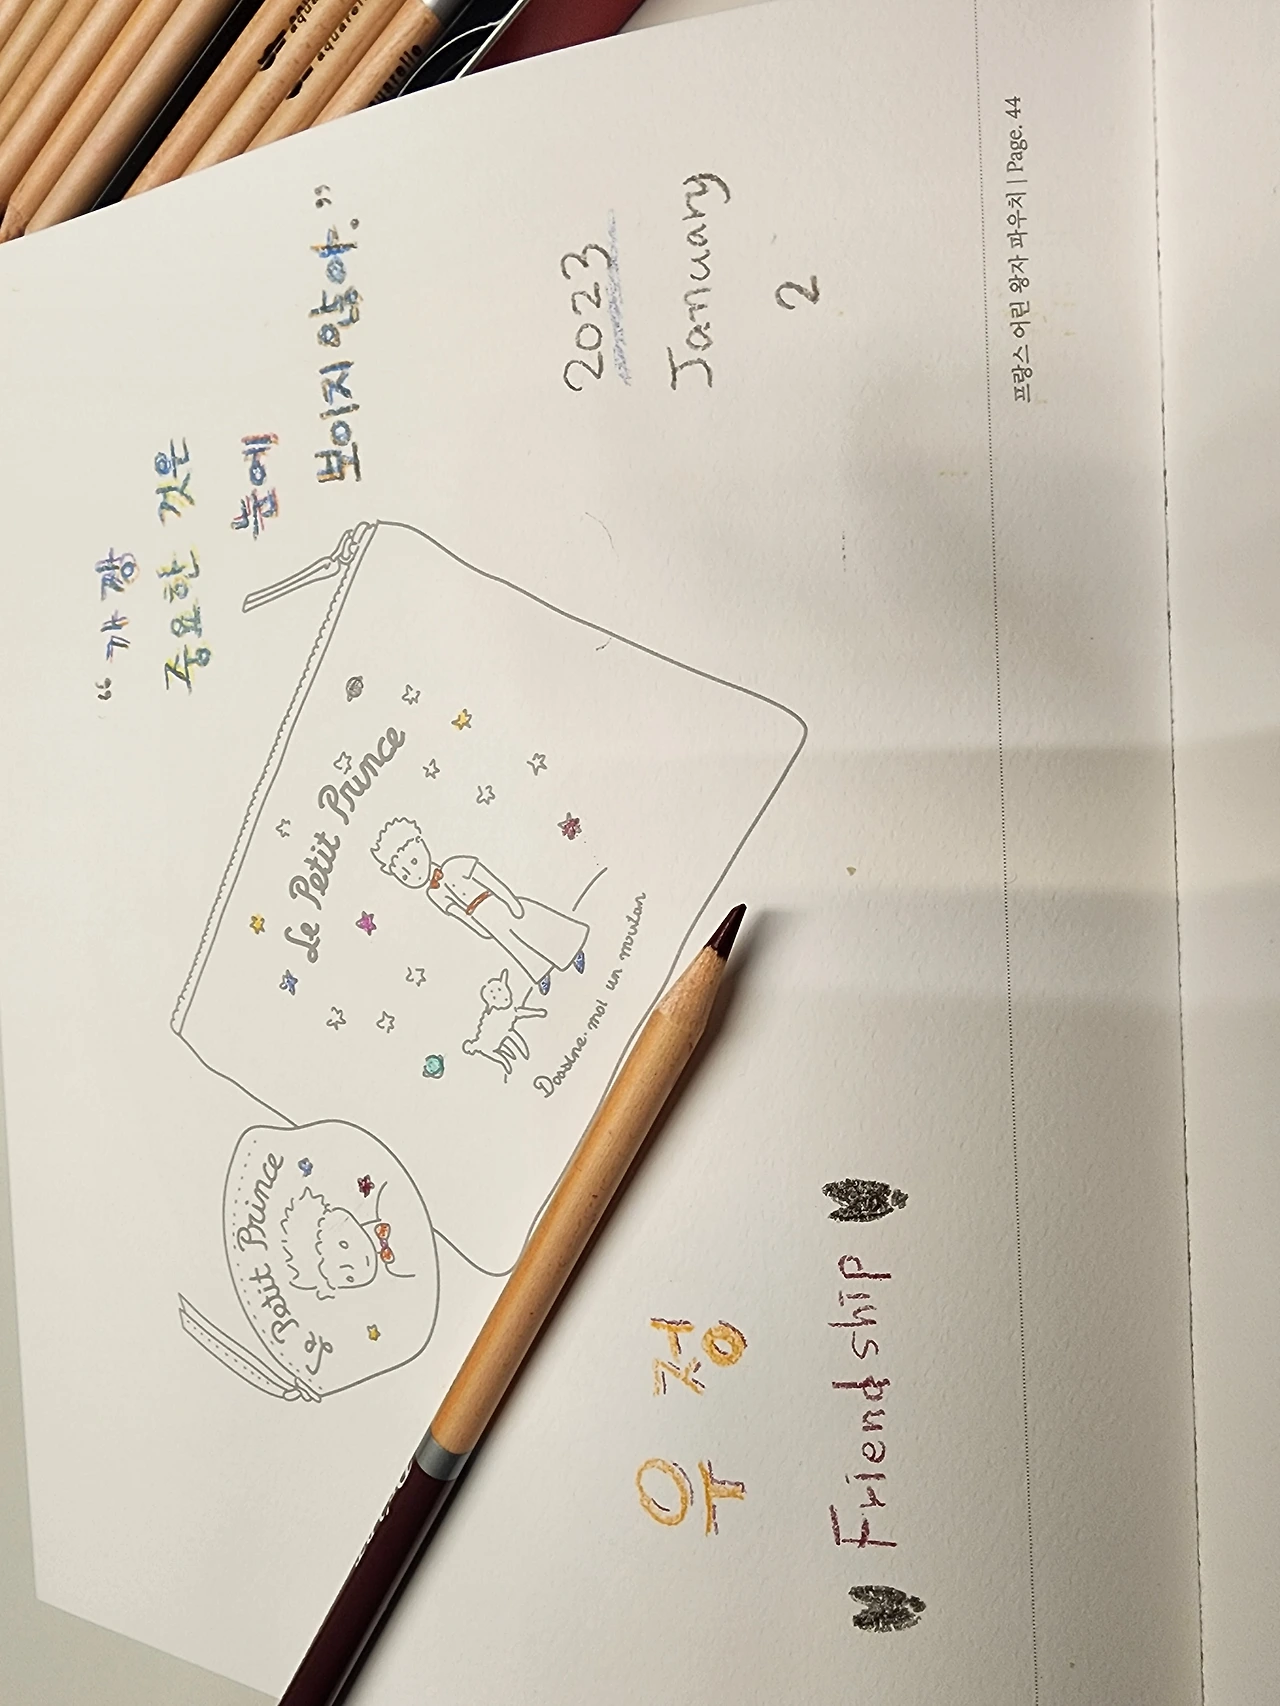 aquarelle
aquarelle
aquarelle
“가장
중요한 것은
눈에
보이지 않아.”
Le Petit Prince
Le Petit Prince
Dessine-moi un mouton
2023
January
2
우정
Friendship
프랑스 어린 왕자 파우치 | Page. 44